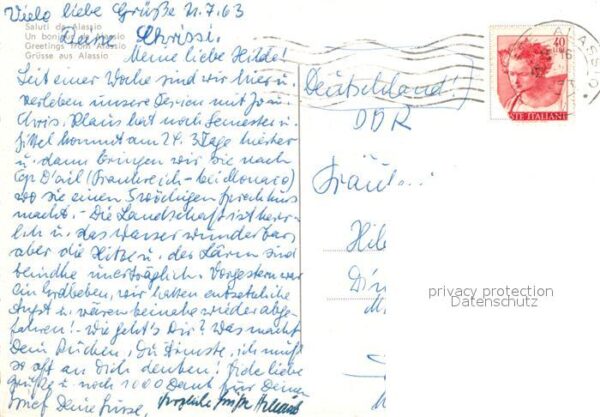 Viele liebe Grüße 21.7.63
Deine Chrissi.
Saluti da Alassio
Un bonjour de Alassio
Greetings from Alassio
Grüsse aus Alassio
Meine liebe Hilde!
Seit einer Woche sind wir hier u.
verleben unsere Ferien mit
Chris. Klaus hat noch Semester u.
kommt am 24. 3 Tage hierher
u. dann bringen wir sie nach
Cap D'ail (Frankreich - bei Monaco)
wo sie einen 5wöchigen Sprachkurs
macht. - Die Landschaft ist herr-
lich u. das Wasser wunderbar,
aber die Hitze u. der Lärm sind
beinahe unerträglich. Vorgestern war
ein Erdbeben, wir hatten entsetzliche
Angst u. wären beinahe wieder abge-
fahren! - Wie geht's Dir? Was macht
Dein Rücken, Du Ärmste, ich muß
so oft an Dich denken! Viele liebe
Grüße u. noch 1000 Dank für Deinen
Brief Deine herzliche Grüße
ALASSIO
40
STE ITALIANE
Deutschland!
DDR
Fräul
Hil
privacy protection
Datenschutz